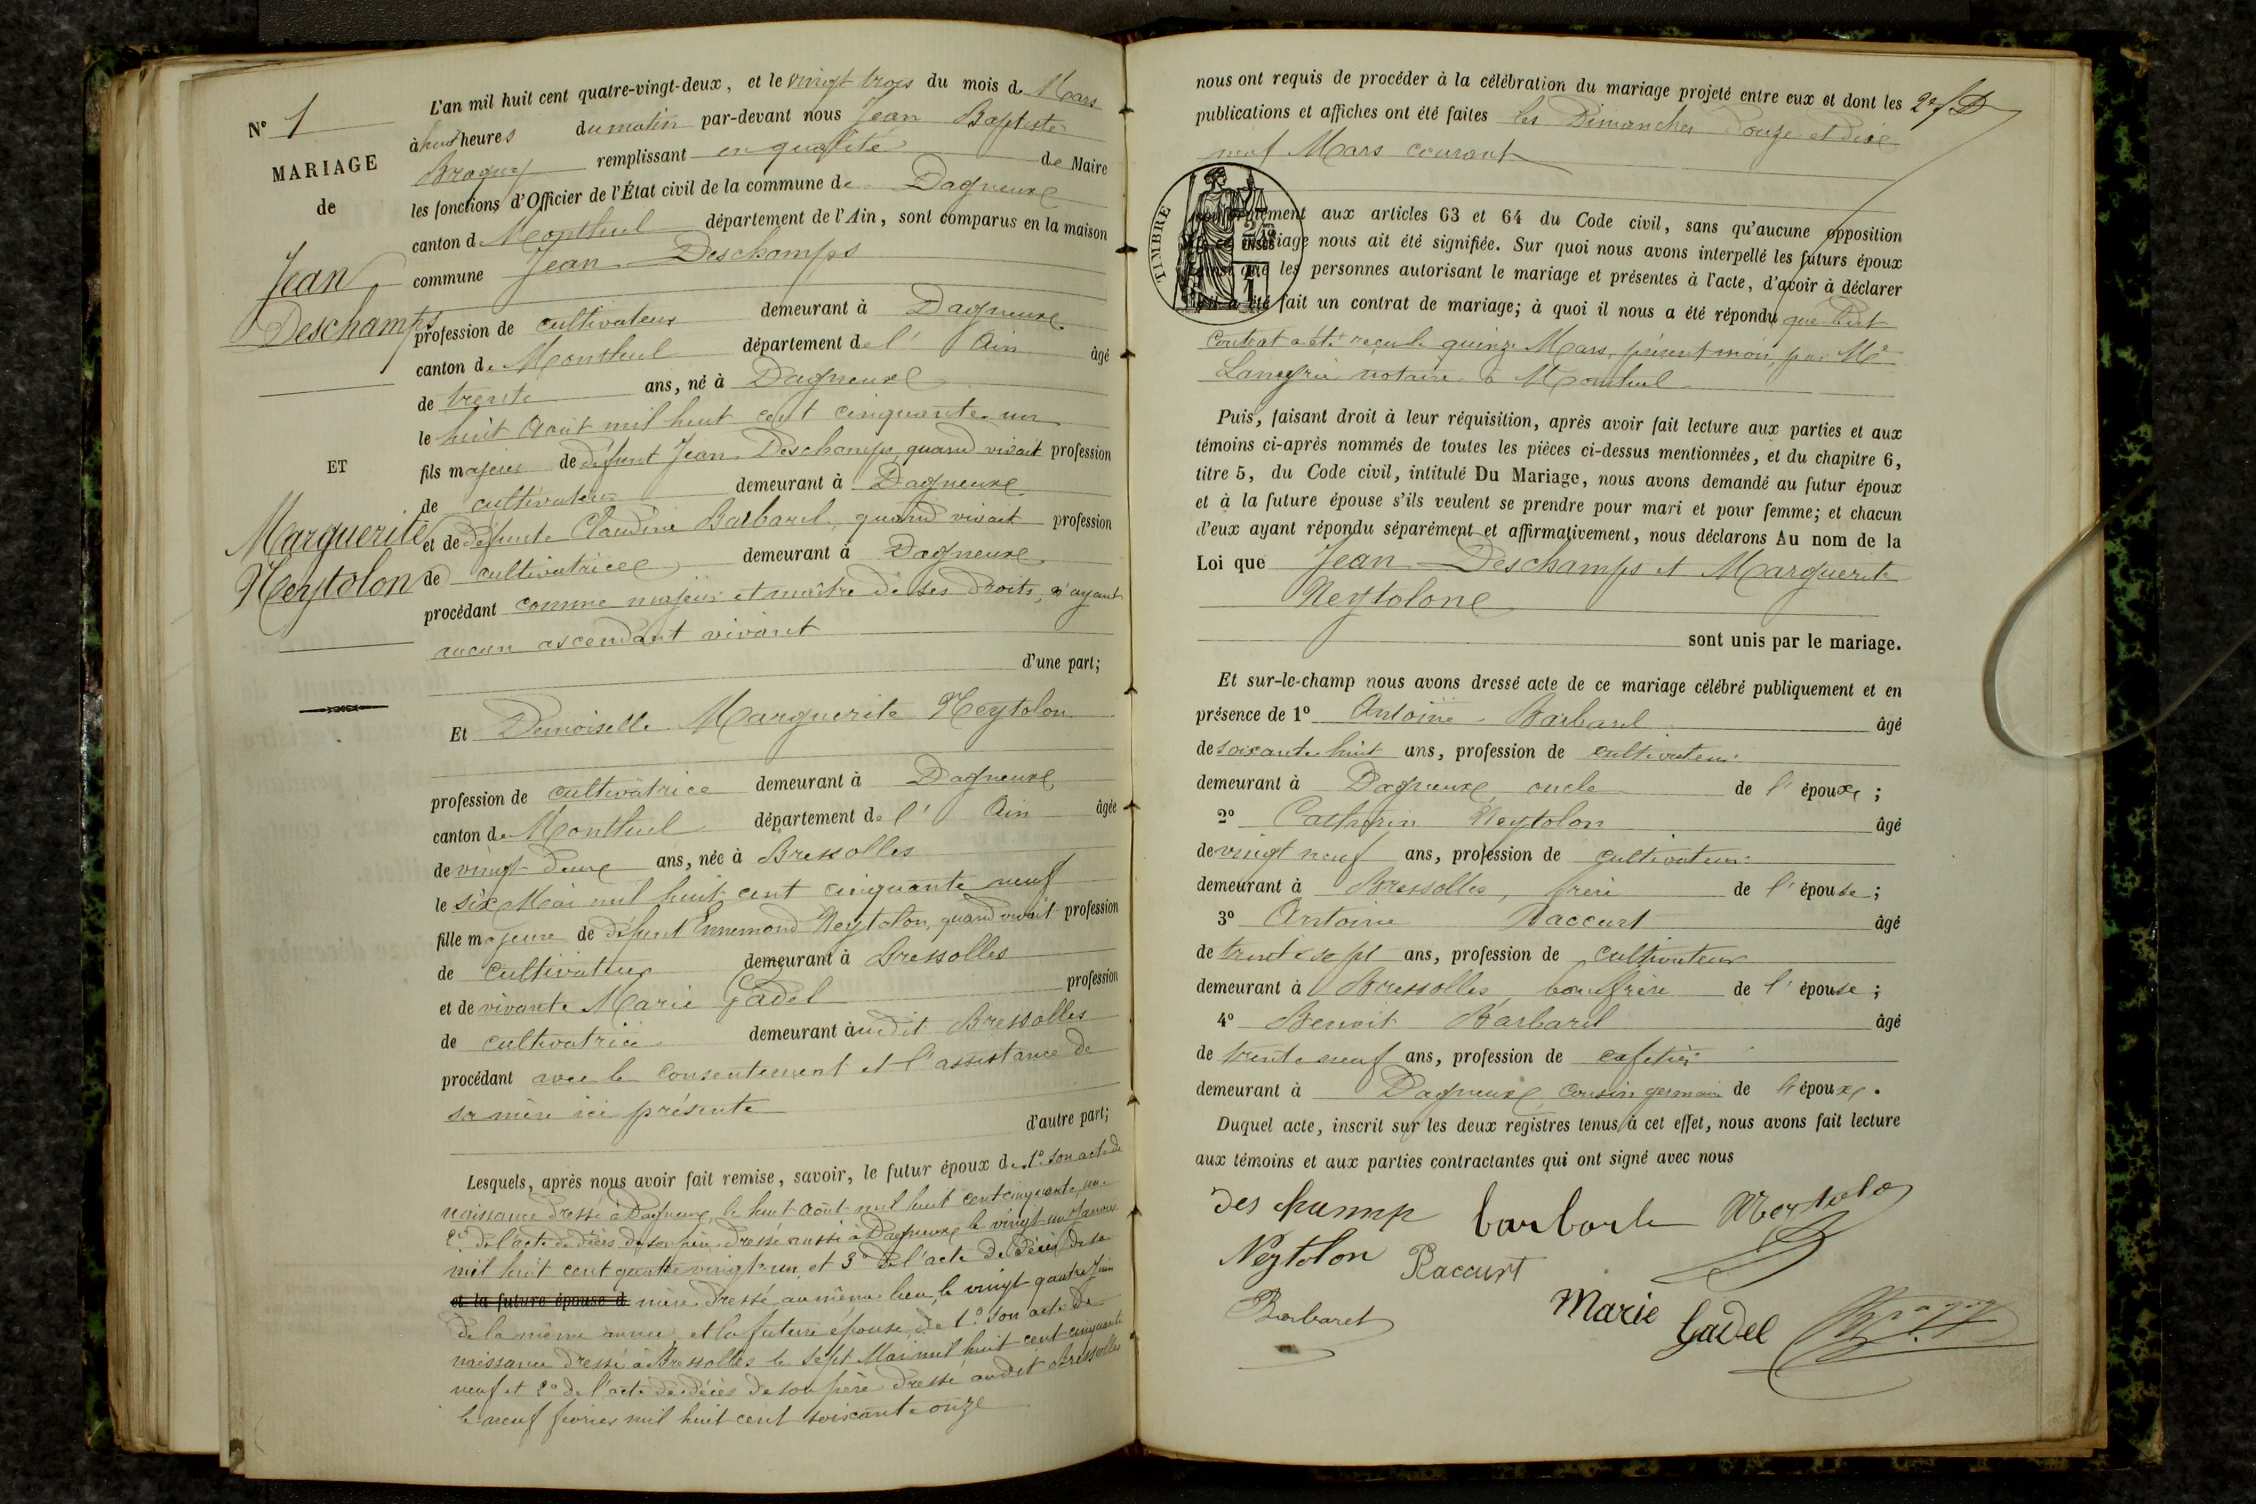 N° 1
MARIAGE
de
Jean
Deschamps
ET
Marguerite
Neytolon
L'an mil huit cent quatre-vingt-deux, et le vingt trois du mois de Mars
à huit heures du matin par-devant nous Jean Baptiste
remplissant en qualité de Maire
les fonctions d'Officier de l'État civil de la commune de Dagneux
canton de Montluel département de l'Ain, sont comparus en la maison
commune Jean Deschamps
profession de cultivateur demeurant à Dagneux
canton de Montluel département de l' Ain âgé
de trente ans, né à Dagneux
le huit Août mil huit cent cinquante un
fils majeur de défunt Jean Deschamps quand vivait profession
de cultivateur demeurant à Dagneux
et de défunte Claudine Barbaret, quand vivait profession
de cultivatrice demeurant à Dagneux
procédant comme majeur et maître de ses droits, n'ayant
aucun ascendant vivant
d'une part;
Et Demoiselle Marguerite Neytolon
profession de cultivatrice demeurant à Dagneux
canton de Montluel département de l' Ain âgée
de vingt deux ans, née à Bressolles
le six Mai mil huit cent cinquante neuf
fille majeure de défunt Ennemond Neytolon, quand vivait profession
de cultivateur demeurant à Bressolles
et de vivante Marie Gadel profession
de cultivatrice demeurant audit Bressolles
procédant avec le consentement et l'assistance de
sa mère ici présente
d'autre part;
Lesquels, après nous avoir fait remise, savoir, le futur époux de 1° son acte de
naissance dressé à Dagneux, le huit Août mil huit cent cinquante un
2° de l'acte de décès de son père dressé aussi à Dagneux le vingt un
mil huit cent quatre vingt un, et 3° de l'acte de décès de sa
et la future épouse d mère dressé au même lieu, le vingt quatre Juin
de la même année, et la future épouse de 1° son acte de
naissance dressé à Bressolles le sept Mai mil huit cent cinquante
neuf et 2° de l'acte de décès de son père dressé audit Bressolles
le neuf février mil huit cent soixante onze
nous ont requis de procéder à la célébration du mariage projeté entre eux et dont les
publications et affiches ont été faites les Dimanches douze et dix
neuf Mars courant
TIMBRE
aux articles 63 et 64 du Code civil, sans qu'aucune opposition
nous ait été signifiée. Sur quoi nous avons interpellé les futurs époux
que les personnes autorisant le mariage et présentes à l'acte, d'avoir à déclarer
été fait un contrat de mariage; à quoi il nous a été répondu que
contrat a été reçu le quinze Mars, présent mois, par Me
notaire à Montluel
Puis, faisant droit à leur réquisition, après avoir fait lecture aux parties et aux
témoins ci-après nommés de toutes les pièces ci-dessus mentionnées, et du chapitre 6,
titre 5, du Code civil, intitulé Du Mariage, nous avons demandé au futur époux
et à la future épouse s'ils veulent se prendre pour mari et pour femme; et chacun
d'eux ayant répondu séparément et affirmativement, nous déclarons Au nom de la
Loi que Jean Deschamps et Marguerite
Neytolon
sont unis par le mariage.
Et sur-le-champ nous avons dressé acte de ce mariage célébré publiquement et en
présence de 1° Antoine Barbaret âgé
de soixante huit ans, profession de cultivateur
demeurant à Dagneux, oncle de l' époux;
2° Catherin Neytolon âgé
de vingt neuf ans, profession de cultivateur
demeurant à Bressolles, frère de l' épouse;
3° Antoine Raccurt âgé
de trente sept ans, profession de cultivateur
demeurant à Bressolles, beau frère de l' épouse;
4° Benoit Barbaret âgé
de trente neuf ans, profession de cafetier
demeurant à Dagneux, cousin germain de l' époux.
Duquel acte, inscrit sur les deux registres tenus à cet effet, nous avons fait lecture
aux témoins et aux parties contractantes qui ont signé avec nous
deschamp
Neytolon Raccurt
Barbaret Marie Gadel